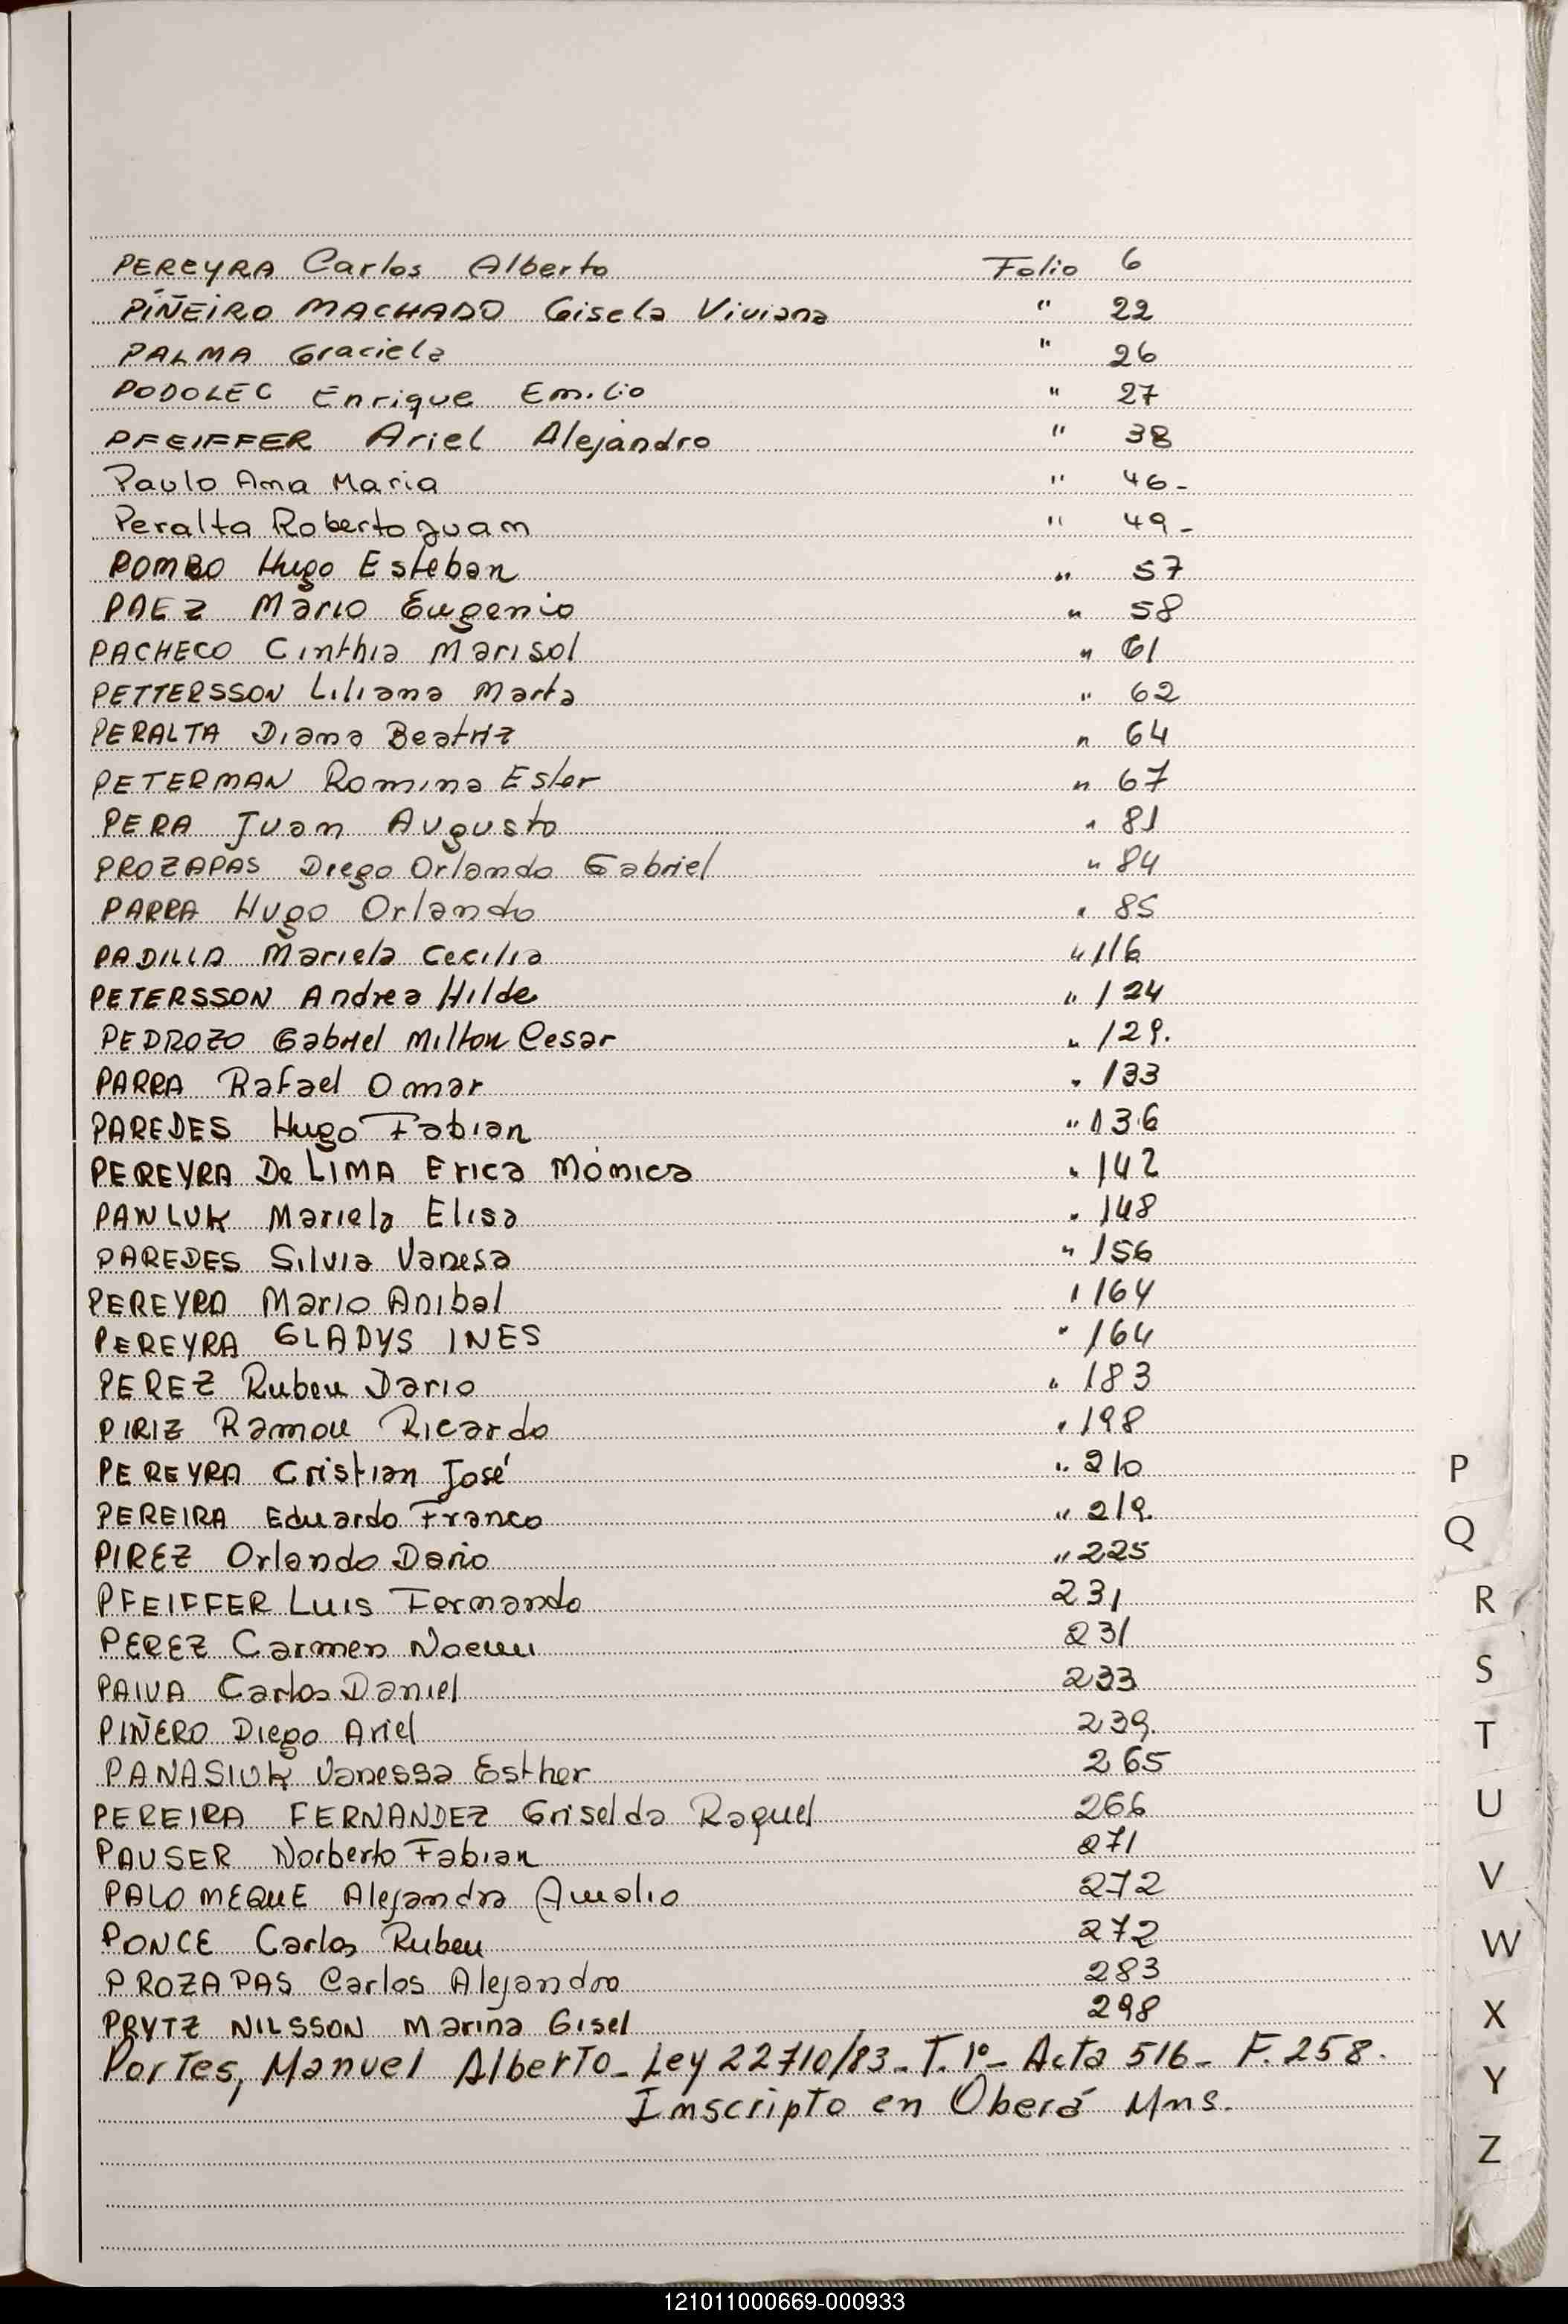 PEREYRA Carlos Alberto Folio 6
PIÑEIRO MACHADO Gisela Viviana " 22
PALMA Graciela " 26
PODOLEC Enrique Emilio " 27
PFEIFFER Ariel Alejandro " 38
Paulo Ana Maria " 46-
Peralta Roberto Juan " 49-
POMBO Hugo Esteban " 57
PAEZ Mario Eugenio " 58
PACHECO Cinthia Marisol " 61
PETTERSSON Liliana Marta " 62
PERALTA Diana Beatriz " 64
PETERMAN Romina Ester " 67
PERA Juan Augusto " 81
PROZAPAS Diego Orlando Gabriel " 84
PARRA Hugo Orlando " 85
PADILLA Mariela Cecilia " 116
PETERSSON Andrea Hilde " 124
PEDROZO Gabriel Milton Cesar " 129.
PARRA Rafael Omar " 133
PAREDES Hugo Fabian " 136
PEREYRA De LIMA Erica Mónica " 142
PAWLUK Mariela Elisa " 148
PAREDES Silvia Vanesa " 156
PEREYRA Mario Anibal " 164
PEREYRA GLADYS INES " 164
PEREZ Ruben Dario " 183
PIRIZ Ramon Ricardo " 198
PEREYRA Cristian José " 210
PEREIRA Eduardo Franco " 219.
PIREZ Orlando Dario " 225
PFEIFFER Luis Fernando 231
PEREZ Carmen Noemi 231
PAIVA Carlos Daniel 233
PIÑERO Diego Ariel 239.
PANASIUK Vanessa Esther 265
PEREIRA FERNANDEZ Griselda Raquel 266
PAUSER Norberto Fabian 271
PALOMEQUE Alejandro Amalio 272
PONCE Carlos Ruben 272
PROZAPAS Carlos Alejandro 283
PRYTZ NILSSON Marina Gisel 298
Portes, Manuel Alberto - Ley 22710/83 - T. 1º - Acta 516 - F. 258.
Inscripto en Oberá Mns.
P
Q
R
S
T
U
V
W
X
Y
Z
121011000669-000933